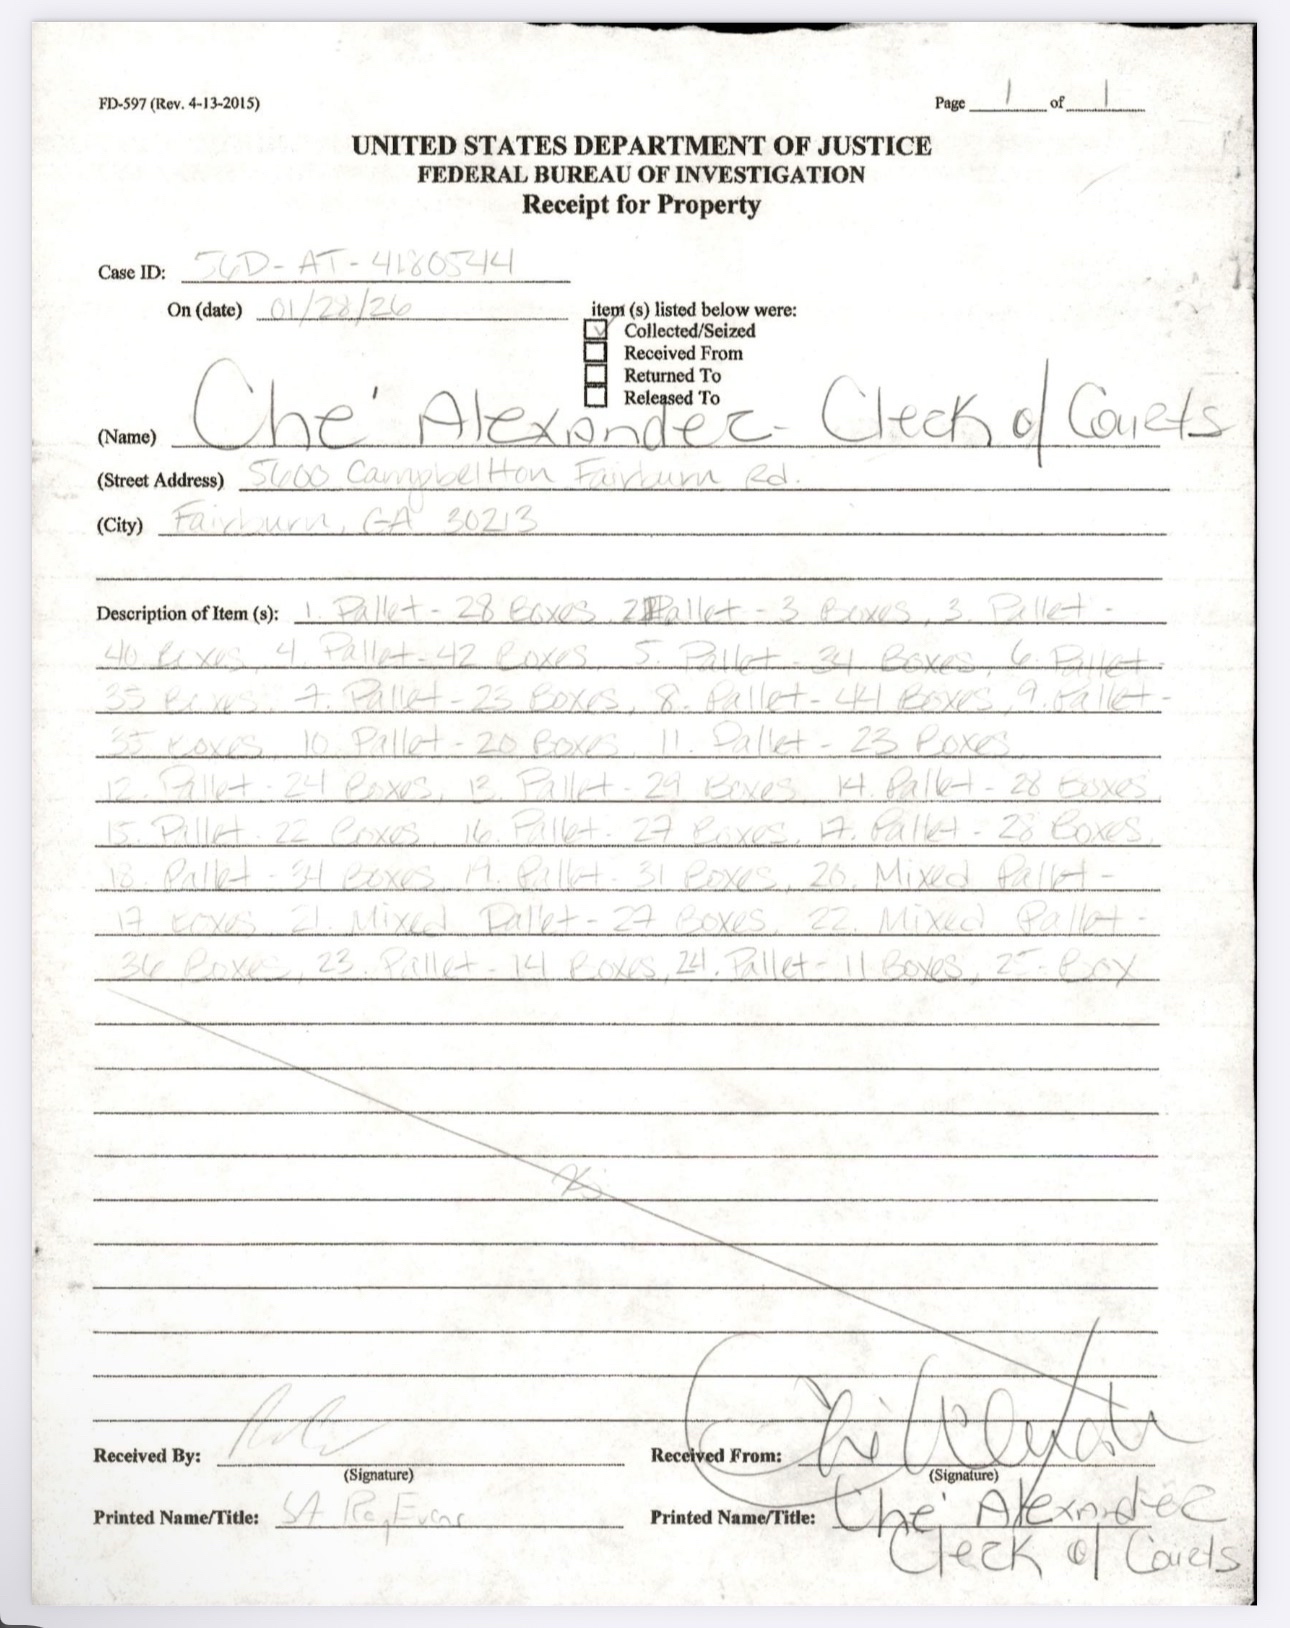 FD-597 (Rev. 4-13-2015)
Page 1 of 1
UNITED STATES DEPARTMENT OF JUSTICE
FEDERAL BUREAU OF INVESTIGATION
Receipt for Property
Case ID: 56D-AT-4180544
On (date) 01/28/26
item (s) listed below were:
Collected/Seized
Received From
Returned To
Released To
(Name) Che' Alexander - Clerk of Courts
(Street Address) 5600 Campbellton Fairburn Rd.
(City) Fairburn, GA 30213
Description of Item (s): 1. Pallet - 28 Boxes, 2. Pallet - 3 Boxes, 3. Pallet -
40 Boxes, 4. Pallet - 42 Boxes, 5. Pallet - 34 Boxes, 6. Pallet -
35 Boxes, 7. Pallet - 23 Boxes, 8. Pallet - 44 Boxes, 9. Pallet -
35 Boxes, 10. Pallet - 20 Boxes, 11. Pallet - 23 Boxes
12. Pallet - 24 Boxes, 13. Pallet - 29 Boxes, 14. Pallet - 28 Boxes
15. Pallet - 22 Boxes, 16. Pallet - 27 Boxes, 17. Pallet - 28 Boxes,
18. Pallet - 34 Boxes, 19. Pallet - 31 Boxes, 20. Mixed Pallet -
17 Boxes, 21. Mixed Pallet - 27 Boxes, 22. Mixed Pallet -
36 Boxes, 23. Pallet - 14 Boxes, 24. Pallet - 11 Boxes, 25 - Box
Received By:
(Signature)
Received From:
(Signature)
Printed Name/Title: SA
Printed Name/Title: Che' Alexander
Clerk of Courts